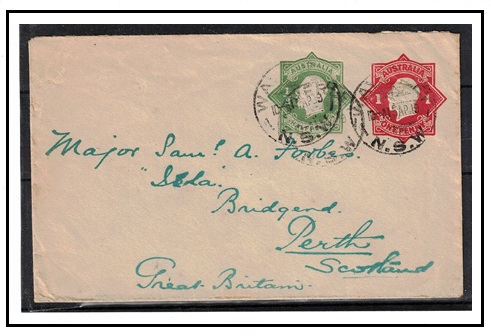 AUSTRALIA AUSTRALIA
1 1
ONE PENNY
N.S.W N.S.W
Major Saml. A. Forbes.
Bridgend.
Perth
Scotland
Great Britain.